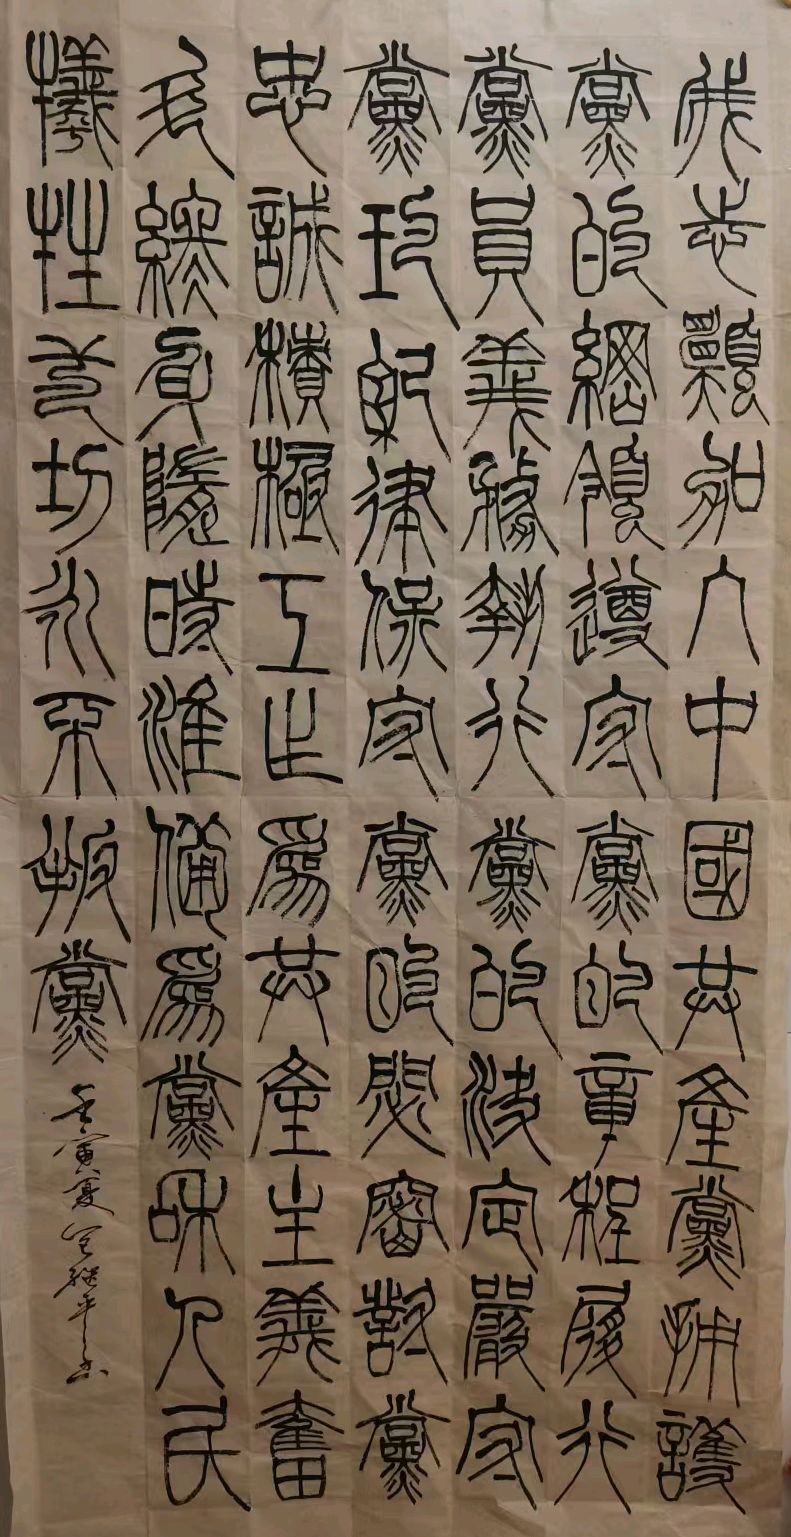 我志願加入中國共產黨擁護
黨的綱領遵守黨的章程履行
黨員義務執行黨的決定嚴守
黨的紀律保守黨的密對黨
忠誠積極工作為共產主義奮
身隨時準備為黨和人民
犧牲切永不叛黨
壬寅夏平书